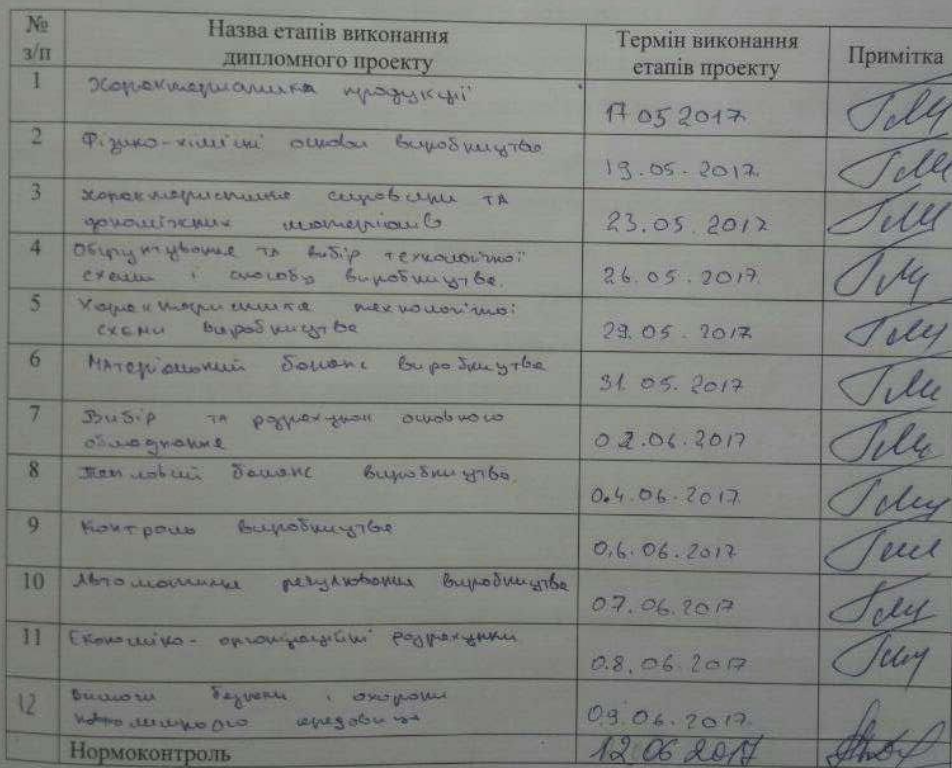 № з/п
Назва етапів виконання дипломного проекту
Термін виконання етапів проекту
Примітка
1
Характеристика продукції
17 05 2017
2
Фізико-хімічні основи виробництва
19.05.2017
3
характеристика сировини та
допоміжних матеріалів
23.05.2017
4
Обґрунтування та вибір технологічної
схеми і способу виробництва.
26.05.2017
5
Характеристика технологічної
схеми виробництва
29.05.2017
6
Матеріальний баланс виробництва
31.05.2017
7
Вибір та розрахунок основного
обладнання
02.06.2017
8
Тепловий баланс виробництва.
04.06.2017
9
Контроль виробництва
06.06.2017
10
Автоматичне регулювання виробництва
07.06.2017
11
Економіко-організаційні розрахунки
08.06.2017
12
Вимоги безпеки і охорони
навколишнього середовища
09.06.2017
Нормоконтроль
12.06 2017